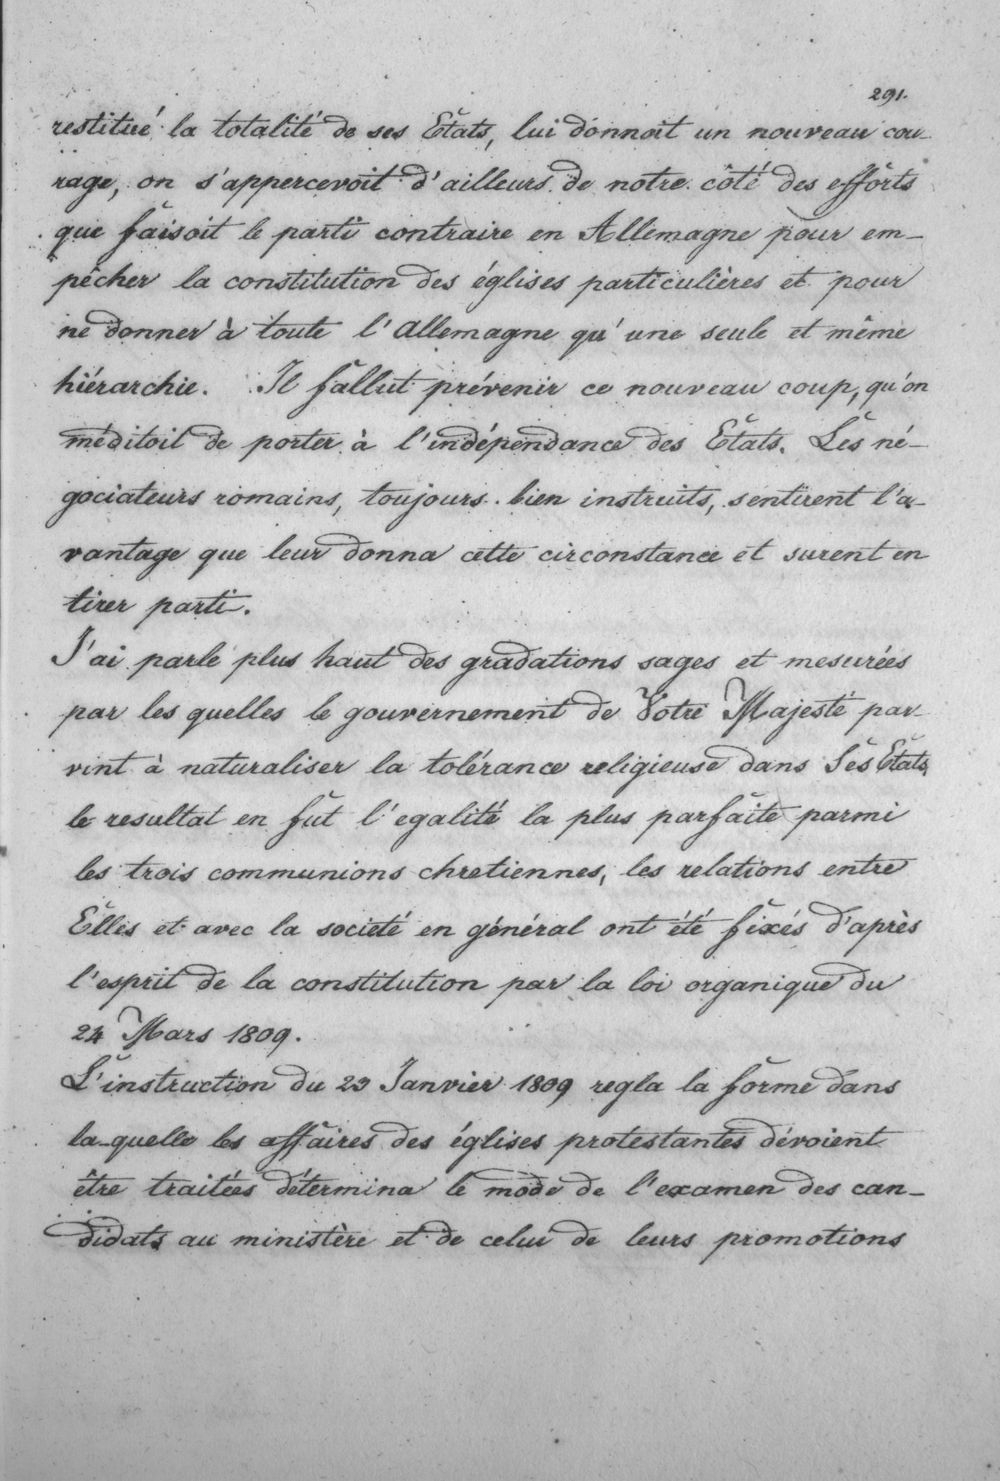 291.
restitué la totalité de ses Etats, lui donnoit un nouveau cou-
rage, on s'appercevoit d'ailleurs de notre côté des efforts
que faisoit le parti contraire en Allemagne pour em-
pêcher la constitution des églises particulières et pour
ne donner à toute l'allemagne qu'une seule et même
hiérarchie. Il fallut prévenir ce nouveau coup, qu'on
méditoit de porter à l'indépendance des Etats. Les né-
gociateurs romains, toujours bien instruits, sentirent l'a-
vantage que leur donna cette circonstance et surent en
tirer parti.
J'ai parlé plus haut des gradations sages et mesurées
par les quelles le gouvernement de Votre Majesté par-
vint à naturaliser la tolérance religieuse dans Ses Etats
le resultat en fut l'egalité la plus parfaite parmi
les trois communions chretiennes, les relations entre
Elles et avec la societé en général ont été fixés d'après
l'esprit de la constitution par la loi organique du
24 Mars 1809.
L'instruction du 23 Janvier 1809 regla la forme dans
la-quelle les affaires des églises protestantes dévoient
être traitées détermina le mode de l'examen des can-
didats au ministère et de celui de leurs promotions